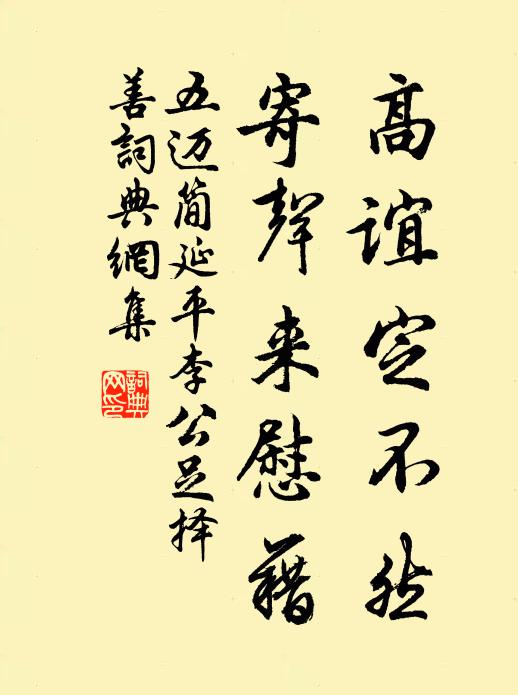 高誼定不然
寄聲来慰藉
五迈简延平李公足择
善詞典網集
詞典
网印